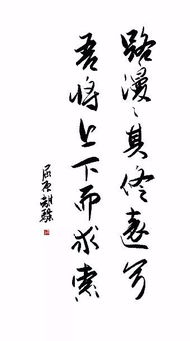 路漫〻其修远兮
吾将上下而求索
屈原诗